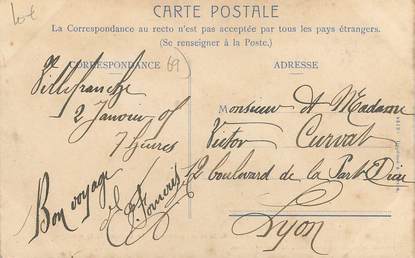 CARTE POSTALE
La Correspondance au recto n'est pas acceptée par tous les pays étrangers.
(Se renseigner à la Poste.)
CORRESPONDANCE
69
ADRESSE
Villefranche
2 Janvier 05
7 heures
Bon voyage
Monsieur et Madame
Victor Curvat
12 boulevard de la Part Dieu
Lyon